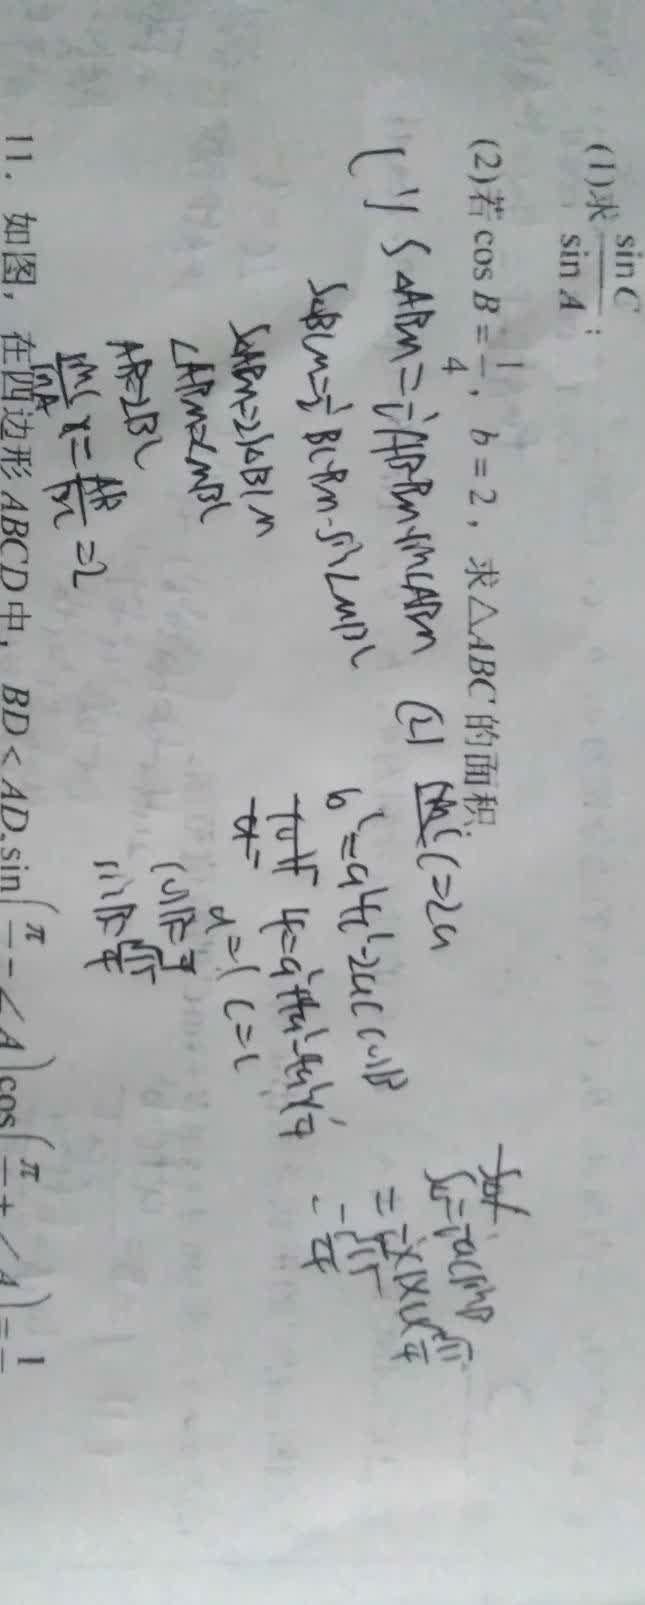 (1)求 sin C / sin A ;
(2)若 cos B = 1/4, b = 2, 求△ABC 的面积.
(1) S△ABM = 1/2 AB·BM·sin∠ABM
S△BCM = 1/2 BC·BM·sin∠MBC
S△ABM = 2S△BCM
∠ABM = ∠MBC
AB = 2BC
sinC / sinA = AB / BC = 2
(2) c = 2a
b² = a² + c² - 2ac cosB
4 = a² + 4a² - 4a² × 1/4
a = 1 c = 2
cosB = 1/4
sinB = √15/4
S = 1/2 ac sinB
= 1/2 × 1 × 2 × √15/4
= √15/4
11. 如图, 在四边形 ABCD 中, BD < AD, sin(π/ - ∠A) cos(π/ + ∠A) = 1/